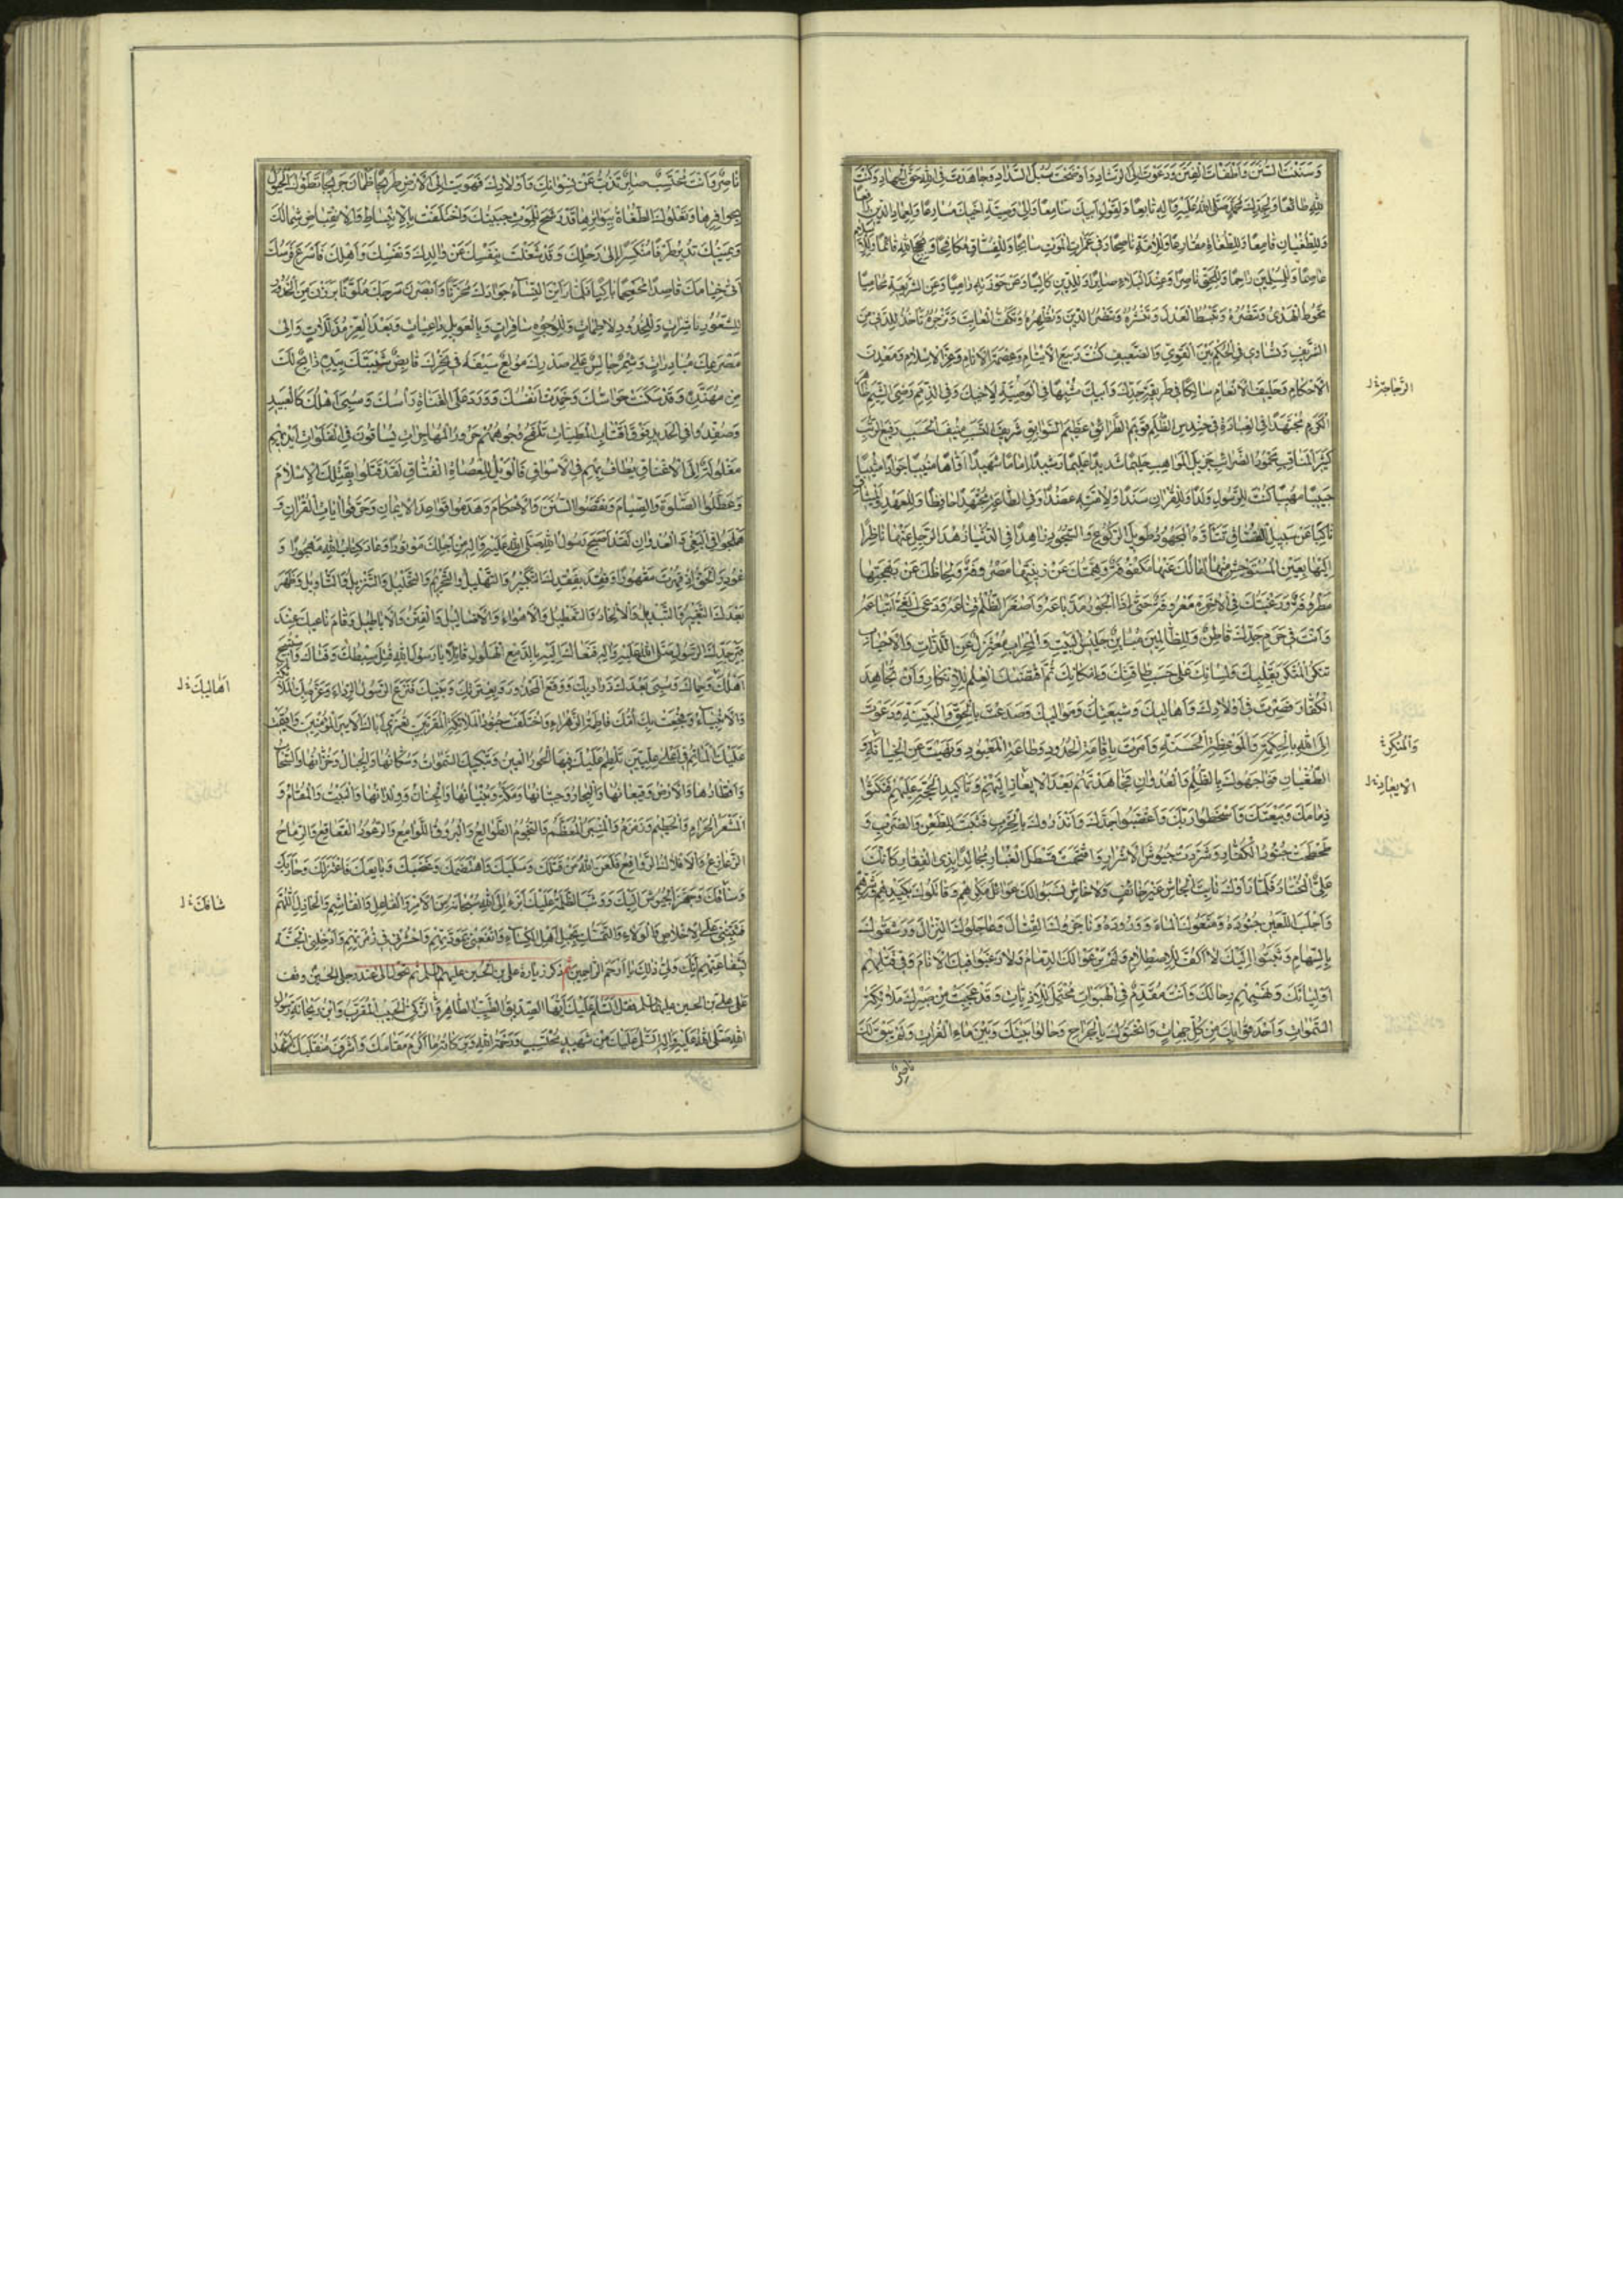 وَسَنَنْتَ السُّنَنَ وَاَطْفَاْتَ الْفِتَنَ وَدَعَوْتَ اِلَى الرَّشَادِ وَاَوْضَحْتَ سُبُلَ السَّدَادِ وَجَاهَدْتَ فِى اللهِ حَقَّ الْجِهَادِ وَكُنْتَ
لِلّٰهِ طَائِعًا وَلِجَدِّكَ مُحَمَّدٍ صَلَّى اللهُ عَلَيْهِ وَاٰلِهِ تَابِعًا وَلِقَوْلِ اَبِيكَ سَامِعًا وَاِلٰى وَصِيَّةِ اَخِيكَ مُسَارِعًا وَلِعِمَادِ الدِّينِ رَافِعًا
وَلِلطُّغْيَانِ قَامِعًا وَلِلطُّغَاةِ مُقَارِعًا وَلِلْاُمَّةِ نَاصِحًا وَفِى غَمَرَاتِ الْمَوْتِ سَابِحًا وَلِلْفُسَّاقِ مُكَافِحًا وَبِحُجَجِ اللهِ قَائِمًا وَلِلْاِسْلَامِ
عَاصِمًا وَلِلْمُسْلِمِينَ رَاحِمًا وَلِلْحَقِّ نَاصِرًا وَعِنْدَ الْبَلَاءِ صَابِرًا وَلِلدِّينِ كَالِئًا وَعَنْ حَوْزَتِهِ رَامِيًا وَعَنِ الشَّرِيعَةِ مُحَامِيًا
تَحُوطُ الْهُدٰى وَتَنْصُرُهُ وَتَبْسُطُ الْعَدْلَ وَتَنْشُرُهُ وَتَنْصُرُ الدِّينَ وَتُظْهِرُهُ وَتَكُفُّ الْعَابِثَ وَتَزْجُرُهُ تَأْخُذُ لِلدَّنِىِّ مِنَ
الشَّرِيفِ وَتُسَاوِى فِى الْحُكْمِ بَيْنَ الْقَوِىِّ وَالضَّعِيفِ كُنْتَ رَبِيعَ الْاَيْتَامِ وَعِصْمَةَ الْاَنَامِ وَعِزَّ الْاِسْلَامِ وَمَعْدِنَ
الْاَحْكَامِ وَحَلِيفَ الْاِنْعَامِ سَالِكًا فِى طَرِيقَةِ جَدِّكَ وَاَبِيكَ مُشْبِهًا فِى الْوَصِيَّةِ لِاَخِيكَ وَفِىَّ الذِّمَمِ رَضِىَّ الشِّيَمِ ظَاهِرَ
الْكَرَمِ مُجْتَهِدًا فِى الْعِبَادَةِ فِى حِنْدِسِ الظُّلَمِ قَوِيمَ الطَّرَائِقِ عَظِيمَ السَّوَابِقِ شَرِيفَ النَّسَبِ مُنِيفَ الْحَسَبِ رَفِيعَ الرُّتَبِ
كَثِيرَ الْمَنَاقِبِ مَحْمُودَ الضَّرَائِبِ جَزِيلَ الْمَوَاهِبِ حَلِيمًا شَدِيدًا عَلِيمًا رَشِيدًا اِمَامًا شَهِيدًا اَوَّاهًا مُنِيبًا جَوَادًا مُثِيبًا
حَبِيبًا مَهِيبًا كُنْتَ لِلرَّسُولِ وَلَدًا وَلِلْقُرْاٰنِ سَنَدًا وَلِلْاُمَّةِ عَضُدًا وَفِى الطَّاعَةِ مُجْتَهِدًا حَافِظًا لِلْعَهْدِ وَالْمِيثَاقِ
نَاكِبًا عَنْ سَبِيلِ الْفُسَّاقِ تَتَاَوَّهُ الْمَجْهُودِ طَوِيلَ الرُّكُوعِ وَالسُّجُودِ زَاهِدًا فِى الدُّنْيَا زُهْدَ الرَّاحِلِ عَنْهَا نَاظِرًا
اِلَيْهَا بِعَيْنِ الْمُسْتَوْحِشِ مِنْهَا اٰمَالُكَ عَنْهَا مَكْفُوفَةٌ وَهِمَّتُكَ عَنْ زِينَتِهَا مَصْرُوفَةٌ وَلِحَاظُكَ عَنْ بَهْجَتِهَا
مَطْرُوفَةٌ وَرَغْبَتُكَ فِى الْاٰخِرَةِ مَعْرُوفَةٌ حَتّٰى اِذَا الْجَوْرُ مَدَّ بَاعَهُ وَاَسْفَرَ الظُّلْمُ قِنَاعَهُ وَدَعَى الْغَىُّ اَتْبَاعَهُ
وَاَنْتَ فِى حَرَمِ جَدِّكَ قَاطِنٌ وَلِلظَّالِمِينَ مُبَايِنٌ جَلِيسُ الْبَيْتِ وَالْمِحْرَابِ مُعْتَزِلٌ عَنِ اللَّذَّاتِ وَالْاَحْبَابِ
تُنْكِرُ الْمُنْكَرَ بِقَلْبِكَ وَلِسَانِكَ عَلٰى حَسَبِ طَاقَتِكَ وَاِمْكَانِكَ ثُمَّ اقْتَضَاكَ الْعِلْمُ لِلْاِنْكَارِ وَاَنْ تُجَاهِدَ
الْكُفَّارَ فَسِرْتَ فِى اَوْلَادِكَ وَاَهَالِيكَ وَشِيعَتِكَ وَمَوَالِيكَ وَصَدَعْتَ بِالْحَقِّ وَالْبَيِّنَةِ وَدَعَوْتَ
اِلَى اللهِ بِالْحِكْمَةِ وَالْمَوْعِظَةِ الْحَسَنَةِ وَاَمَرْتَ بِاِقَامَةِ الْحُدُودِ وَطَاعَةِ الْمَعْبُودِ وَنَهَيْتَ عَنِ الْخِيَانَةِ وَ
الطُّغْيَانِ فَوَاجَهُوكَ بِالظُّلْمِ وَالْعُدْوَانِ فَجَاهَدْتَهُمْ بَعْدَ الْاِيعَادِ اِلَيْهِمْ وَتَاْكِيدِ الْحُجَّةِ عَلَيْهِمْ فَنَكَثُوا
ذِمَامَكَ وَبَيْعَتَكَ وَاَسْخَطُوا رَبَّكَ وَاَغْضَبُوا جَدَّكَ وَاَنْذَرُوكَ بِالْحَرْبِ فَثَبَتَّ لِلطَّعْنِ وَالضَّرْبِ وَ
طَحْطَحْتَ جُنُودَ الْكُفَّارِ وَشَرَّدْتَ جُيُوشَ الْاَشْرَارِ وَاقْتَحَمْتَ قَسْطَلَ الْغُبَارِ مُجَالِدًا بِذِى الْفَقَارِ كَاَنَّكَ
عَلِىٌّ الْمُخْتَارُ فَلَمَّا رَاَوْكَ ثَابِتَ الْجَاْشِ غَيْرَ خَائِفٍ وَلَا خَاشٍ نَصَبُوا لَكَ غَوَائِلَ مَكْرِهِمْ وَقَاتَلُوكَ بِكَيْدِهِمْ وَشَرِّهِمْ
وَاَجْلَبَ اللَّعِينُ جُنُودَهُ وَمَنَعُوكَ الْمَاءَ وَوُرُودَهُ وَنَاجَزُوكَ الْقِتَالَ وَعَاجَلُوكَ النِّزَالَ وَرَشَقُوكَ
بِالسِّهَامِ وَبَسَطُوا اِلَيْكَ الْاَكُفَّ لِلْاِصْطِلَامِ وَلَمْ يَرْعَوْا لَكَ الذِّمَامَ وَلَا رَاقَبُوا فِيكَ الْاَنَامَ وَفِى قَتْلِهِمْ
اَوْلِيَائَكَ وَنَهْبِهِمْ رِحَالَكَ وَاَنْتَ مُقَدَّمٌ فِى الْهَبَوَاتِ مُحْتَمِلٌ لِلْاَذِيَّاتِ وَقَدْ عَجِبَتْ مِنْ صَبْرِكَ مَلَائِكَةُ
السَّمٰوَاتِ وَاَحْدَقُوا بِكَ مِنْ كُلِّ الْجِهَاتِ وَاَثْخَنُوكَ بِالْجِرَاحِ وَحَالُوا بَيْنَكَ وَبَيْنَ مَاءِ الْفُرَاتِ وَلَمْ يَبْقَ لَكَ
ناصر
وَالْمُنْكِرَةَ
الْاِيعَادِ
نَاصِرٌ وَاَنْتَ مُحْتَسِبٌ صَابِرٌ تَذُبُّ عَنْ نِسْوَانِكَ وَاَوْلَادِكَ فَهَوَيْتَ اِلَى الْاَرْضِ طَرِيحًا ظَمْاٰنَ جَرِيحًا تَطَؤُكَ الْخُيُولُ
بِحَوَافِرِهَا وَتَعْلُوكَ الطُّغَاةُ بِبَوَاتِرِهَا قَدْ رَشَحَ لِلْمَوْتِ جَبِينُكَ وَاخْتَلَفَتْ بِالْاِنْبِسَاطِ وَالْاِنْقِبَاضِ شِمَالُكَ
وَيَمِينُكَ تُدِيرُ طَرْفًا مُنْكَسِرًا اِلٰى رَحْلِكَ وَقَدْ شُغِلْتَ بِنَفْسِكَ عَنْ وَالِدِكَ وَنَفْسِكَ وَاَهْلِكَ فَاَسْرَعَ فَرَسُكَ
اِلٰى خِيَامِكَ قَاصِدًا مُحَمْحِمًا بَاكِيًا فَلَمَّا رَاَيْنَ النِّسَاءُ جَوَادَكَ مَخْزِيًّا وَاَبْصَرْنَ سَرْجَكَ مَلْوِيًّا بَرَزْنَ مِنَ الْخُدُورِ
لِلشُّعُورِ نَاشِرَاتٍ وَلِلْخُدُودِ لَاطِمَاتٍ وَلِلْوُجُوهِ سَافِرَاتٍ وَبِالْعَوِيلِ دَاعِيَاتٍ وَبَعْدَ الْعِزِّ مُذَلَّلَاتٍ وَاِلٰى
مَصْرَعِكَ مُبَادِرَاتٍ وَشِمْرٌ جَالِسٌ عَلٰى صَدْرِكَ مُولِغٌ سَيْفَهُ فِى نَحْرِكَ قَابِضٌ شَيْبَتَكَ بِيَدِهِ ذَابِحٌ لَكَ
بِمُهَنَّدِهِ وَقَدْ سَكَنَتْ حَوَاسُّكَ وَخَمَدَتْ اَنْفَاسُكَ وَوَرَدَ عَلَى الْقَنَاةِ رَاْسُكَ وَسُبِىَ اَهْلُكَ كَالْعَبِيدِ
وَصُفِّدُوا فِى الْحَدِيدِ فَوْقَ اَقْتَابِ الْمَطِيَّاتِ تَلْفَحُ وُجُوهَهُمْ حَرُورُ الْهَاجِرَاتِ يُسَاقُونَ فِى الْفَلَوَاتِ اَيْدِيهِمْ
مَغْلُولَةٌ اِلَى الْاَعْنَاقِ يُطَافُ بِهِمْ فِى الْاَسْوَاقِ فَالْوَيْلُ لِلْعُصَاةِ الْفُسَّاقِ لَقَدْ قَتَلُوا بِقَتْلِكَ الْاِسْلَامَ
وَعَطَّلُوا الصَّلٰوةَ وَالصِّيَامَ وَنَقَضُوا السُّنَنَ وَالْاَحْكَامَ وَهَدَمُوا قَوَاعِدَ الْاِيمَانِ وَحَرَّفُوا اٰيَاتِ الْقُرْاٰنِ وَ
هَمْلَجُوا فِى الْبَغْىِ وَالْعُدْوَانِ لَقَدْ اَصْبَحَ رَسُولُ اللهِ صَلَّى اللهُ عَلَيْهِ وَاٰلِهِ مِنْ اَجْلِكَ مَوْتُورًا وَعَادَ كِتَابُ اللهِ مَهْجُورًا وَ
غُودِرَ الْحَقُّ اِذْ قُهِرْتَ مَقْهُورًا وَفُقِدَ بِفَقْدِكَ التَّكْبِيرُ وَالتَّهْلِيلُ وَالتَّحْرِيمُ وَالتَّحْلِيلُ وَالتَّنْزِيلُ وَالتَّاْوِيلُ وَظَهَرَ
بَعْدَكَ التَّغْيِيرُ وَالتَّبْدِيلُ وَالْاِلْحَادُ وَالتَّعْطِيلُ وَالْاَهْوَاءُ وَالْاَضَالِيلُ وَالْفِتَنُ وَالْاَبَاطِيلُ وَقَامَ نَاعِيكَ عِنْدَ
قَبْرِ جَدِّكَ الرَّسُولِ صَلَّى اللهُ عَلَيْهِ وَاٰلِهِ فَنَعَاكَ اِلَيْهِ بِالدَّمْعِ الْهَطُولِ قَائِلًا يَا رَسُولَ اللهِ قُتِلَ سِبْطُكَ وَفَتَاكَ وَاسْتُبِيحَ
اَهْلُكَ وَحِمَاكَ وَسُبِىَ بَعْدَكَ ذَرَارِيكَ وَوَقَعَ الْمَحْذُورُ بِعِتْرَتِكَ وَبَنِيكَ فَنَزَعَ الرَّسُولُ الرِّدَاءَ وَعَزَّاهُ بِكَ الْمَلَائِكَةُ
وَالْاَنْبِيَاءُ وَفُجِعَتْ بِكَ اُمُّكَ فَاطِمَةُ الزَّهْرَاءُ وَاخْتَلَفَ جُنُودُ الْمَلَائِكَةِ الْمُقَرَّبِينَ تُعَزِّى اَبَاكَ اَمِيرَ الْمُؤْمِنِينَ وَاُقِيمَتْ
عَلَيْكَ الْمَاٰتِمُ فِى اَعْلٰى عِلِّيِّينَ تَلْطِمُ عَلَيْكَ فِيهَا الْحُورُ الْعِينُ وَتَبْكِيكَ السَّمٰوَاتُ وَسُكَّانُهَا وَالْجِبَالُ وَخُزَّانُهَا وَالسَّحَابُ
وَاَقْطَارُهَا وَالْاَرْضُ وَقِيعَانُهَا وَالْبِحَارُ وَحِيتَانُهَا وَمَكَّةُ وَبُنْيَانُهَا وَالْجِنَانُ وَوِلْدَانُهَا وَالْبَيْتُ وَالْمَقَامُ وَ
الْمَشْعَرُ الْحَرَامُ وَالْحَطِيمُ وَزَمْزَمُ وَالْمِنْبَرُ الْمُعَظَّمُ وَالنُّجُومُ الطَّوَالِعُ وَالْبُرُوقُ اللَّوَامِعُ وَالرُّعُودُ الْقَعَاقِعُ وَالرِّيَاحُ
الزَّعَازِعُ وَالْاَفْلَاكُ الرَّوَافِعُ فَلَعَنَ اللهُ مَنْ قَتَلَكَ وَسَلَبَكَ وَاهْتَضَمَكَ وَغَصَبَكَ وَبَايَعَكَ فَاعْتَزَلَكَ وَحَارَبَكَ
وَسَاقَكَ وَجَهَّزَ الْجُيُوشَ اِلَيْكَ وَوَثَبَ الظَّلَمَةُ عَلَيْكَ اَبْرَءُ اِلَى اللهِ سُبْحَانَهُ مِنَ الْاٰمِرِ وَالْفَاعِلِ وَالْغَاشِمِ وَالْخَاذِلِ اَللّٰهُمَّ
فَثَبِّتْنِى عَلَى الْاِخْلَاصِ وَالْوَلَاءِ وَالتَّمَسُّكِ بِحَبْلِ اَهْلِ الْكِسَاءِ وَانْفَعْنِى بِمَوَدَّتِهِمْ وَاحْشُرْنِى فِى زُمْرَتِهِمْ وَاَدْخِلْنِى الْجَنَّةَ
بِشَفَاعَتِهِمْ اِنَّكَ وَلِىُّ ذٰلِكَ يَا اَرْحَمَ الرَّاحِمِينَ ذكر زيارة على بن الحسين عليهما السلم ثم تحول الى عند رجل الحسين وقف
على على بن الحسين عليهما السلم فقل اَلسَّلَامُ عَلَيْكَ اَيُّهَا الصِّدِّيقُ الطَّيِّبُ الطَّاهِرُ وَالزَّكِىُّ الْحَبِيبُ الْمُقَرَّبُ وَابْنَ رَيْحَانَةِ رَسُولِ
اللهِ صَلَّى اللهُ عَلَيْهِ وَاٰلِهِ اَلسَّلَامُ عَلَيْكَ مِنْ شَهِيدٍ مُحْتَسِبٍ وَرَحْمَةُ اللهِ وَبَرَكَاتُهُ مَا اَكْرَمَ مَقَامَكَ وَاَشْرَفَ مُنْقَلَبَكَ اَشْهَدُ
اَهَالِيكَ
شاقك